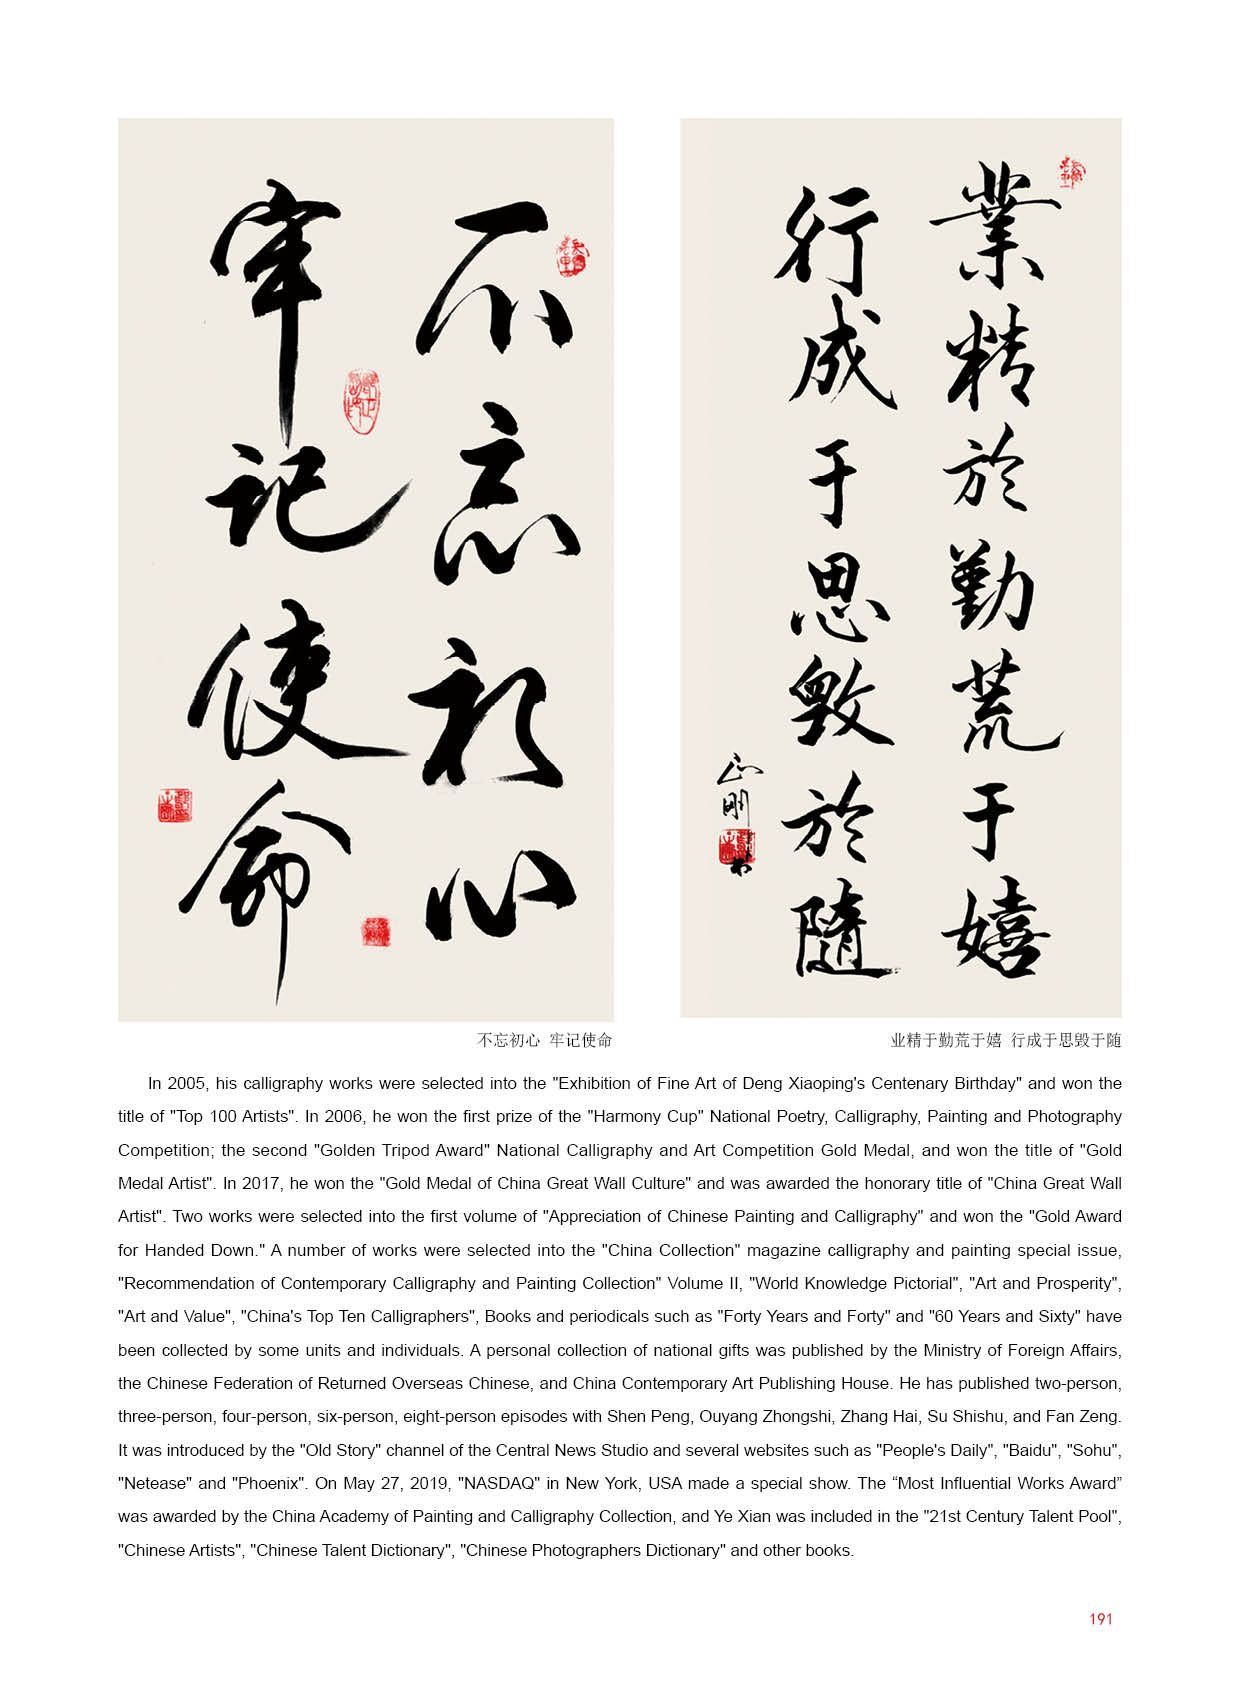 不忘初心
牢记使命
業精於勤荒于嬉
行成于思毀於隨
不忘初心 牢记使命
业精于勤荒于嬉 行成于思毁于随
In 2005, his calligraphy works were selected into the "Exhibition of Fine Art of Deng Xiaoping's Centenary Birthday" and won the
title of "Top 100 Artists". In 2006, he won the first prize of the "Harmony Cup" National Poetry, Calligraphy, Painting and Photography
Competition; the second "Golden Tripod Award" National Calligraphy and Art Competition Gold Medal, and won the title of "Gold
Medal Artist". In 2017, he won the "Gold Medal of China Great Wall Culture" and was awarded the honorary title of "China Great Wall
Artist". Two works were selected into the first volume of "Appreciation of Chinese Painting and Calligraphy" and won the "Gold Award
for Handed Down." A number of works were selected into the "China Collection" magazine calligraphy and painting special issue,
"Recommendation of Contemporary Calligraphy and Painting Collection" Volume II, "World Knowledge Pictorial", "Art and Prosperity",
"Art and Value", "China's Top Ten Calligraphers", Books and periodicals such as "Forty Years and Forty" and "60 Years and Sixty" have
been collected by some units and individuals. A personal collection of national gifts was published by the Ministry of Foreign Affairs,
the Chinese Federation of Returned Overseas Chinese, and China Contemporary Art Publishing House. He has published two-person,
three-person, four-person, six-person, eight-person episodes with Shen Peng, Ouyang Zhongshi, Zhang Hai, Su Shishu, and Fan Zeng.
It was introduced by the "Old Story" channel of the Central News Studio and several websites such as "People's Daily", "Baidu", "Sohu",
"Netease" and "Phoenix". On May 27, 2019, "NASDAQ" in New York, USA made a special show. The “Most Influential Works Award”
was awarded by the China Academy of Painting and Calligraphy Collection, and Ye Xian was included in the "21st Century Talent Pool",
"Chinese Artists", "Chinese Talent Dictionary", "Chinese Photographers Dictionary" and other books.
191